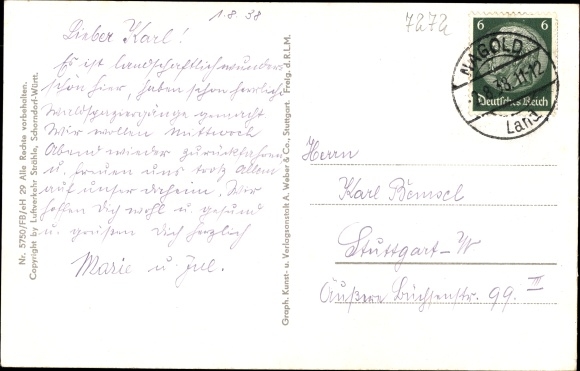 1.8.38
7272
Lieber Karl!
Es ist landschaftlich wunder-
schön hier, haben schon herrliche
Waldspaziergänge gemacht.
Wir wollen Mittwoch
Abend wieder zurückfahren
u. freuen uns trotz Allem
auf unser daheim. Wir
hoffen Dich wohl u. gesund
u. grüssen Dich herzlich
Marie u. Jul.
Nr. 5750/FB/eH 29 Alle Rechte vorbehalten.
Copyright by Luftverkehr Strähle, Schorndorf-Württ.
Graph. Kunst- u. Verlagsanstalt A. Weber & Co., Stuttgart. Freig. d. R.L.M.
6 6
Deutsches Reich
NAGOLD
11-12
Land
Herrn
Karl
Stuttgart-W
Äußere Büchsenstr. 99. III